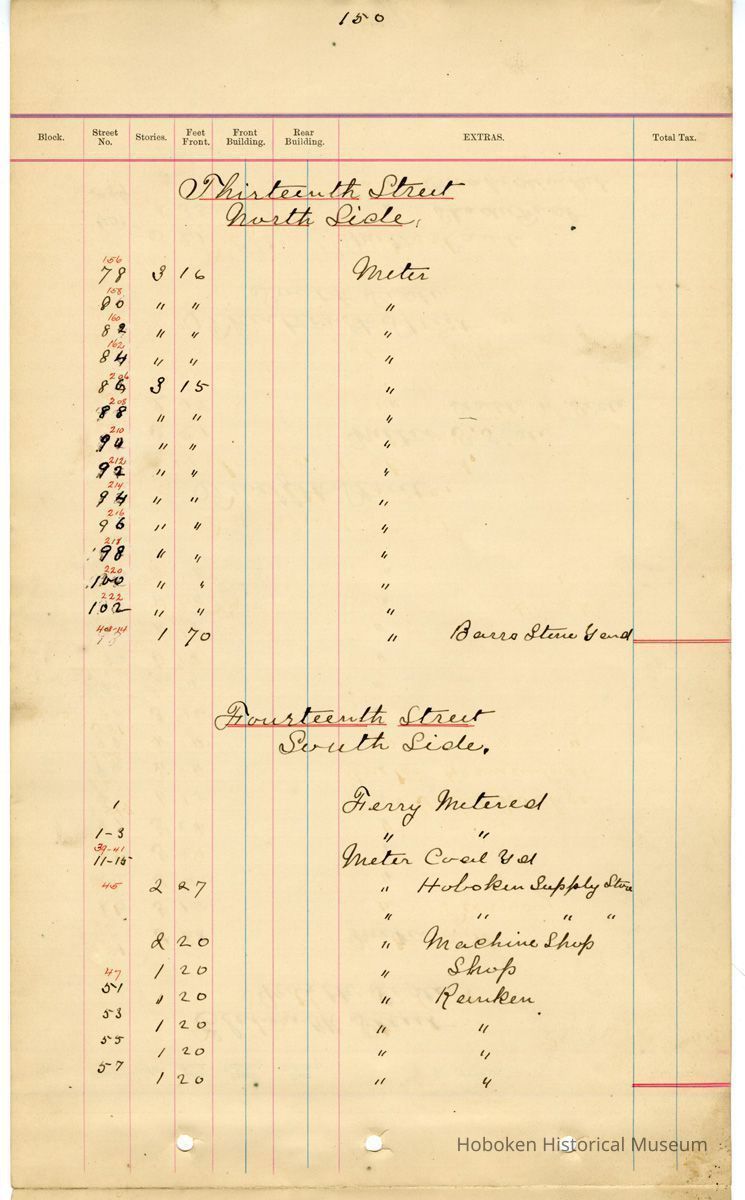 150
Block. Street No. Stories. Feet Front. Front Building. Rear Building. EXTRAS. Total Tax.
Thirteenth Street
North Side.
156
78 3 16 Meter
158
80 " " "
160
82 " " "
162
84 " " "
206
86 3 15 "
208
88 " " "
210
90 " " "
212
92 " " "
214
94 " " "
216
96 " " "
218
98 " " "
220
100 " " "
222
102 " " "
1 70 " Barro Stone Yard
Fourteenth Street
South Side.
1 Ferry Metered
1-3 " "
39-41
11-15 Meter Coal Yd
45 2 27 " Hoboken Supply Store
" " " "
2 20 " Machine Shop
47 1 20 " Shop
51 " 20 " Renken
53 1 20 " "
55 1 20 " "
57 1 20 " "
Hoboken Historical Museum